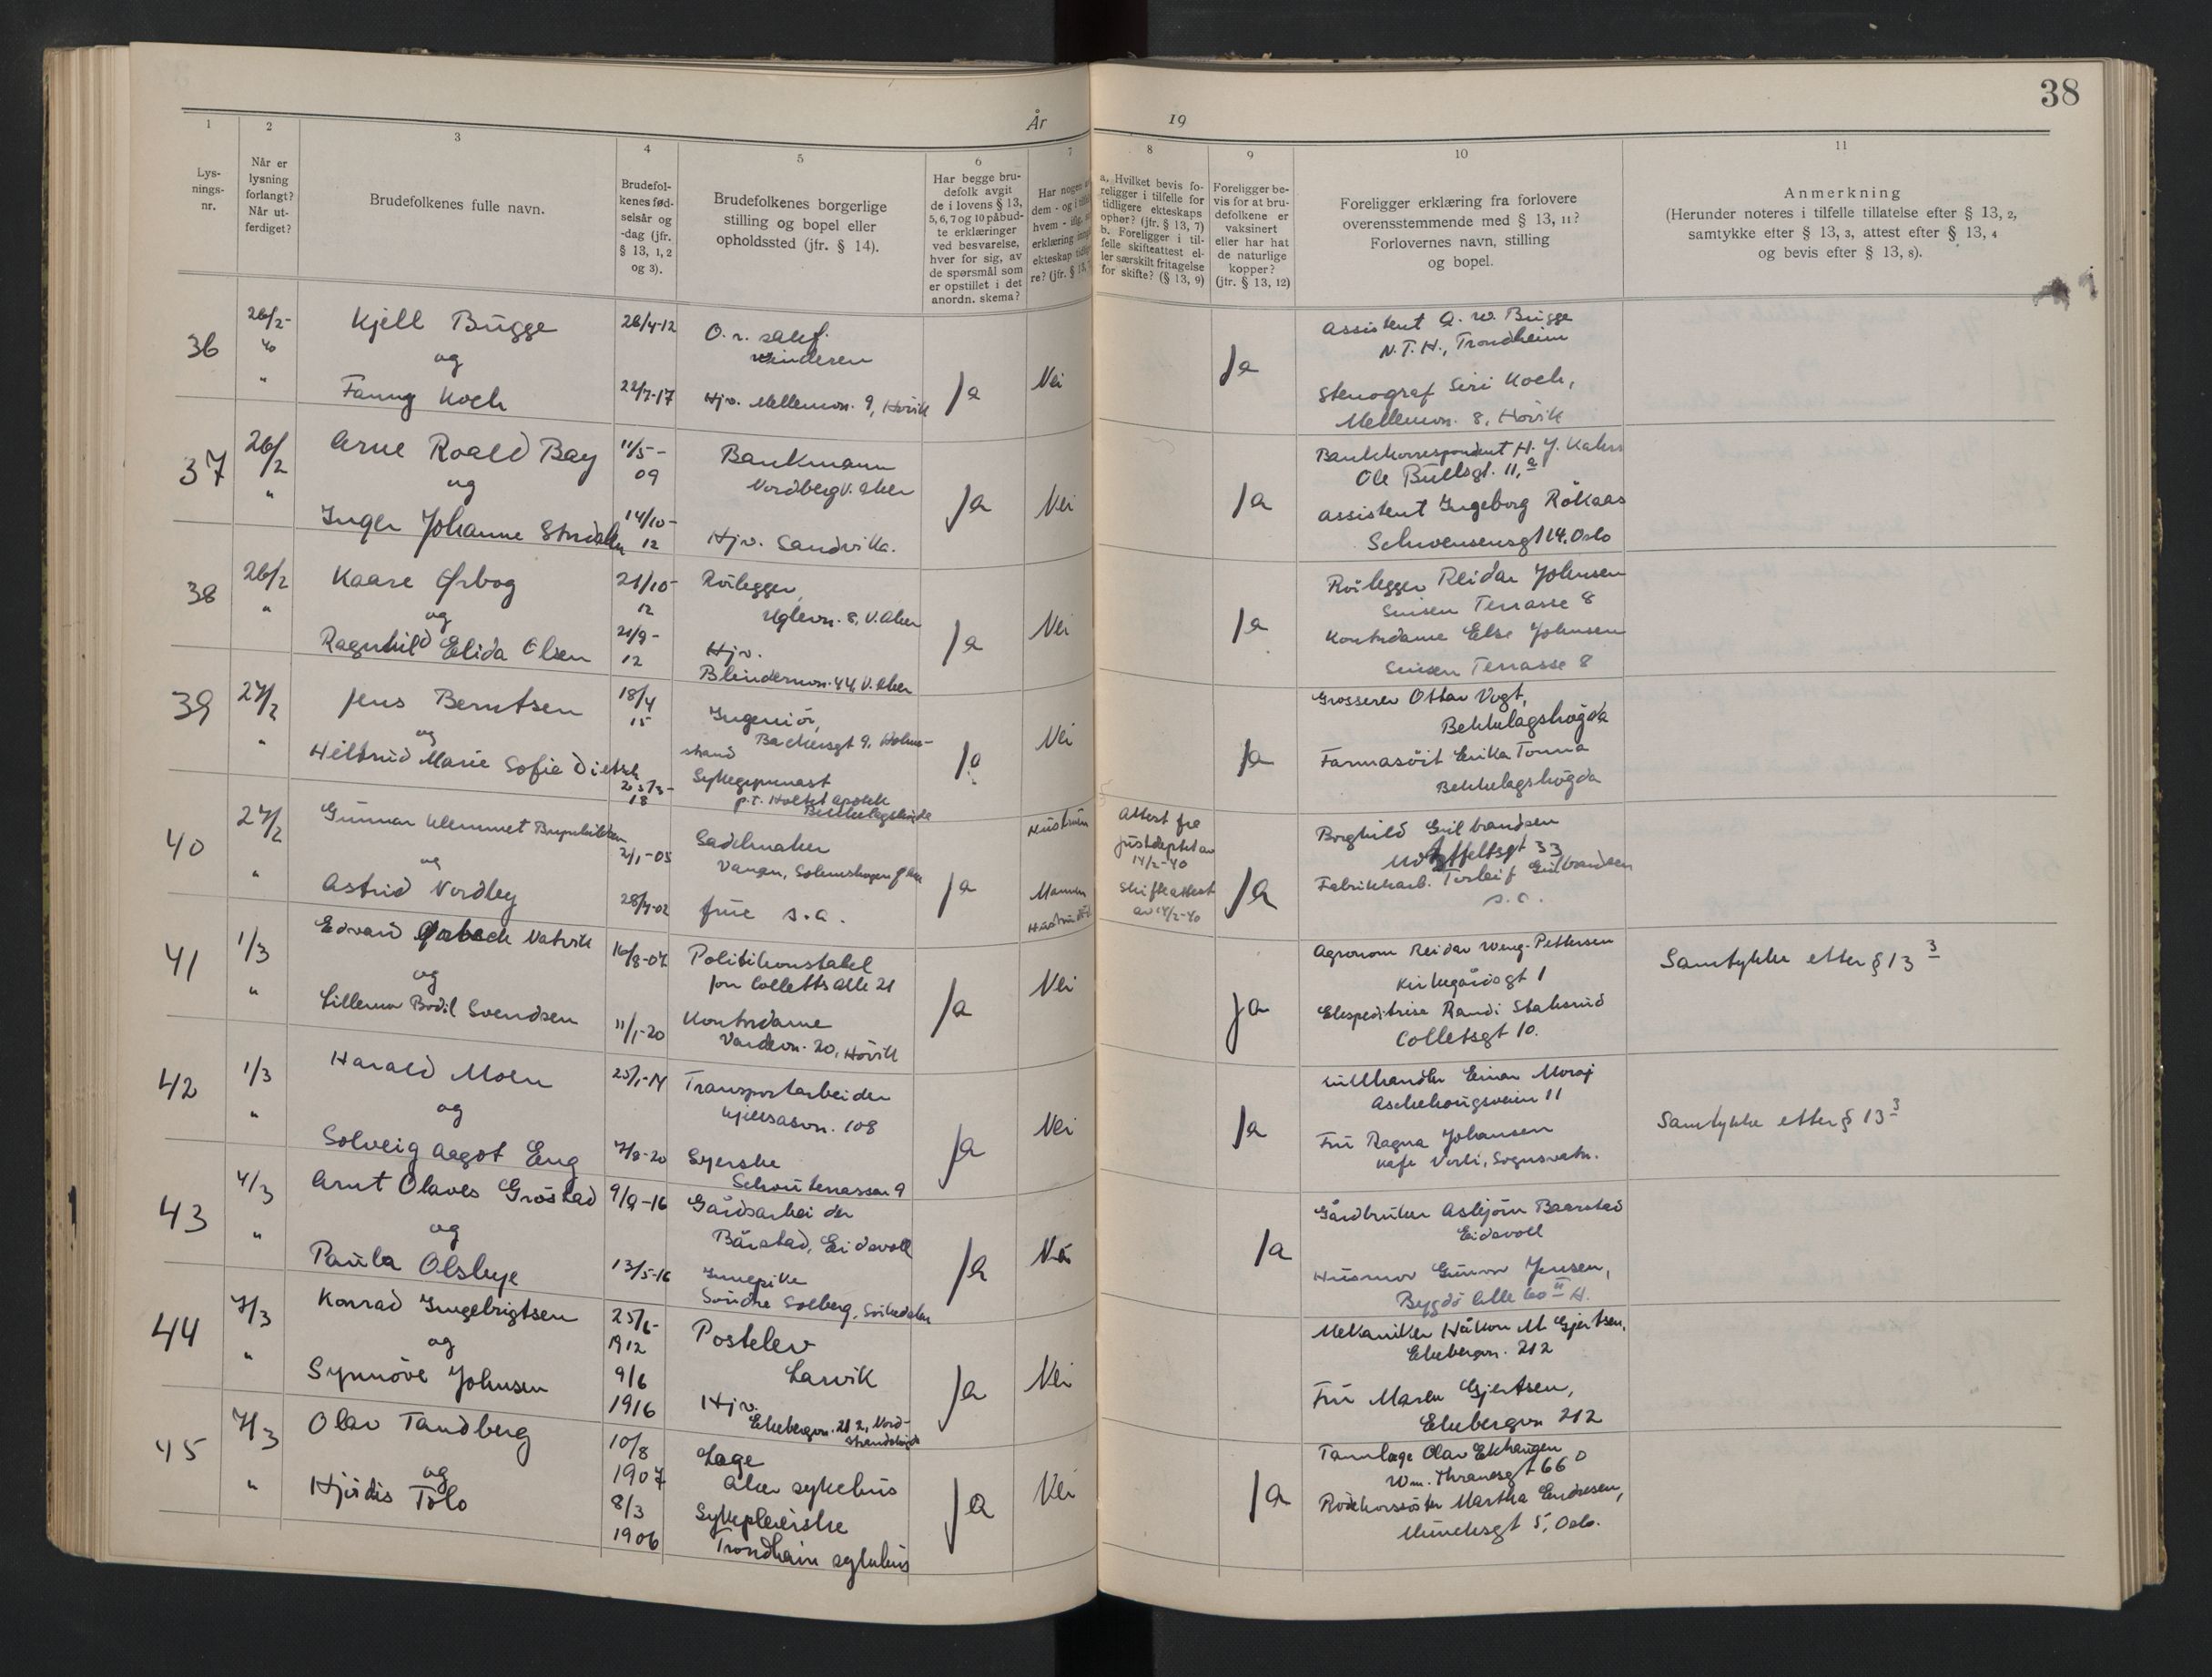 38
År 19
1
Lys-
nings-
nr.
2
Når er
lysning
forlangt?
Når ut-
ferdiget?
3
Brudefolkenes fulle navn.
4
Brudefol-
kenes fød-
selsår og
-dag (jfr.
§ 13, 1, 2
og 3).
5
Brudefolkenes borgerlige
stilling og bopel eller
opholdssted (jfr. § 14).
6
Har begge bru-
defolk avgit
de i lovens § 13,
5, 6, 7 og 10 påbud-
te erklæringer
ved besvarelse,
hver for sig, av
de spørsmål som
er opstillet i det
anordn. skema?
7
Har nogen
dem - og i
hvem - iflg.
erklæring
ekteskap
re? (jfr. § 13,
8
a. Hvilket bevis fo-
religger i tilfelle for
tidligere ekteskaps
ophør? (jfr. § 13, 7)
b. Foreligger i til-
felle skifteattest el-
ler særskilt fritagelse
for skifte? (§ 13, 9)
9
Foreligger be-
vis for at bru-
defolkene er
vaksinert
eller har hat
de naturlige
kopper?
(jfr. § 13, 12)
10
Foreligger erklæring fra forlovere
overensstemmende med § 13, 11?
Forlovernes navn, stilling
og bopel.
11
Anmerkning
(Herunder noteres i tilfelle tillatelse efter § 13, 2,
samtykke efter § 13, 3, attest efter § 13, 4
og bevis efter § 13, 8).
36
26/2-
40
"
Kjell Bugge
og
Fanny Koch
26/4-12
22/7-17
O.r. sakf.
Vinderen
Hjv. Mellemvn. 9, Høvik
Ja
Nei
Ja
Assistent A. W. Bugge
N.T.H., Trondheim
Stenograf Siri Koch,
Mellemvn. 8, Høvik
37
26/2
"
Arne Roald Bay
og
Inger Johanne
11/5-
09
14/10-
12
Bankmann
Nordberg V. Aker
Hjv. Sandvika.
Ja
Nei
Ja
Bankkorrespondent H. J.
Ole Bullsgt. 11, a
Assistent Ingeborg Rökaas
Schwensensgt 14, Oslo
38
26/2
"
Kaare Ørbog
og
Ragnhild Elida Olsen
21/10-
12
21/9-
12
Rörlegger,
Uglevn. 8, V. Aker
Hjv.
Blindernvn. 44, V. Aker
Ja
Nei
Ja
Rörlegger Reidar Johnsen
Sinsen Terrasse 8
Kontrdame Else Johnsen
Sinsen Terrasse 8
39
27/2
"
Jens Berntsen
og
Hiltrud Marie Sofie
18/4
15
18
Ingeniör,
Backersgt 9, Holme-
strand
Sykegymnast
p.t. Holtet apotek
Bekkelagshögda
Ja
Nei
Ja
Grosserer Ottar Vogt,
Bekkelagshögda
Farmasöit Erika Tonna
Bekkelagshögda
40
27/2
"
Gunnar Klemmet
og
Astrid Nordby
2/1-05
28/7-02
Sadelmaker
Vangen,
frue s.a.
Ja
Hustruen
Mannen
Attest fra
justdeptet av
14/2-40
Skifteattest
av 14/2-40
Ja
Borghild Gulbrandsen
33
Fabrikkarb. Torleif Gulbrandsen
s.a.
41
1/3
"
Edvard Natvik
og
Lillemor Bodil Svendsen
16/8-07
11/1-20
Politikonstabel
Jon Colletts alle 21
Kontrdame
Vardevn. 20, Høvik
Ja
Nei
Ja
Agronom Reidar Weng-Pettersen
Kirkegårdsgt 1
Ekspeditrise Randi Staksrud
Colletsgt 10.
Samtykke etter § 13 3
42
1/3
"
Harald Moen
og
Solveig Aagot Eng
25/1-14
7/8-20
Transportarbeider
Kjelsåsvn. 108
Syerske
Schouterrassen 9
Ja
Nei
Ja
Kullhandler Einar Moraj
Aschehougsveien 11
Fru Ragna Johansen
Kafe Verli, Sognsvatn.
Samtykke etter § 13 3
43
4/3
"
Arnt Olaves Gröstad
og
Paula Olsbye
9/9-16
13/5-16
Gårdsarbeider
Bårstad, Eidsvoll
Innepike
Söndre Solberg, Sörkedalen
Ja
Nei
Ja
Gårdbruker Asbjörn Baarstad
Eidsvoll
Husmor Gunvor Jensen,
Bygdö Alle 60 II H.
44
7/3
"
Konrad Ingebrigtsen
og
Synnöve Johnsen
25/6-
1912
9/6
1916
Postelev
Larvik
Hjv.
Ekebergvn. 212, Nord-
strandshögda
Ja
Nei
Mekaniker Håkon M. Gjertsen,
Ekebergvn. 212
Fru Maren Gjertsen,
Ekebergvn 212
45
7/3
"
Olav Tandberg
og
Hjördis Tolo
10/8
1907
8/3
1906
Læge
Aker sykehus
Sykepleierske
Trondheim sykehus
Ja
Nei
Ja
Tannlæge Olav Ekhaugen
Wm. Thranesgt 66 D
Rödekorssöster Martha Endresen,
Munchsgt 5, Oslo.